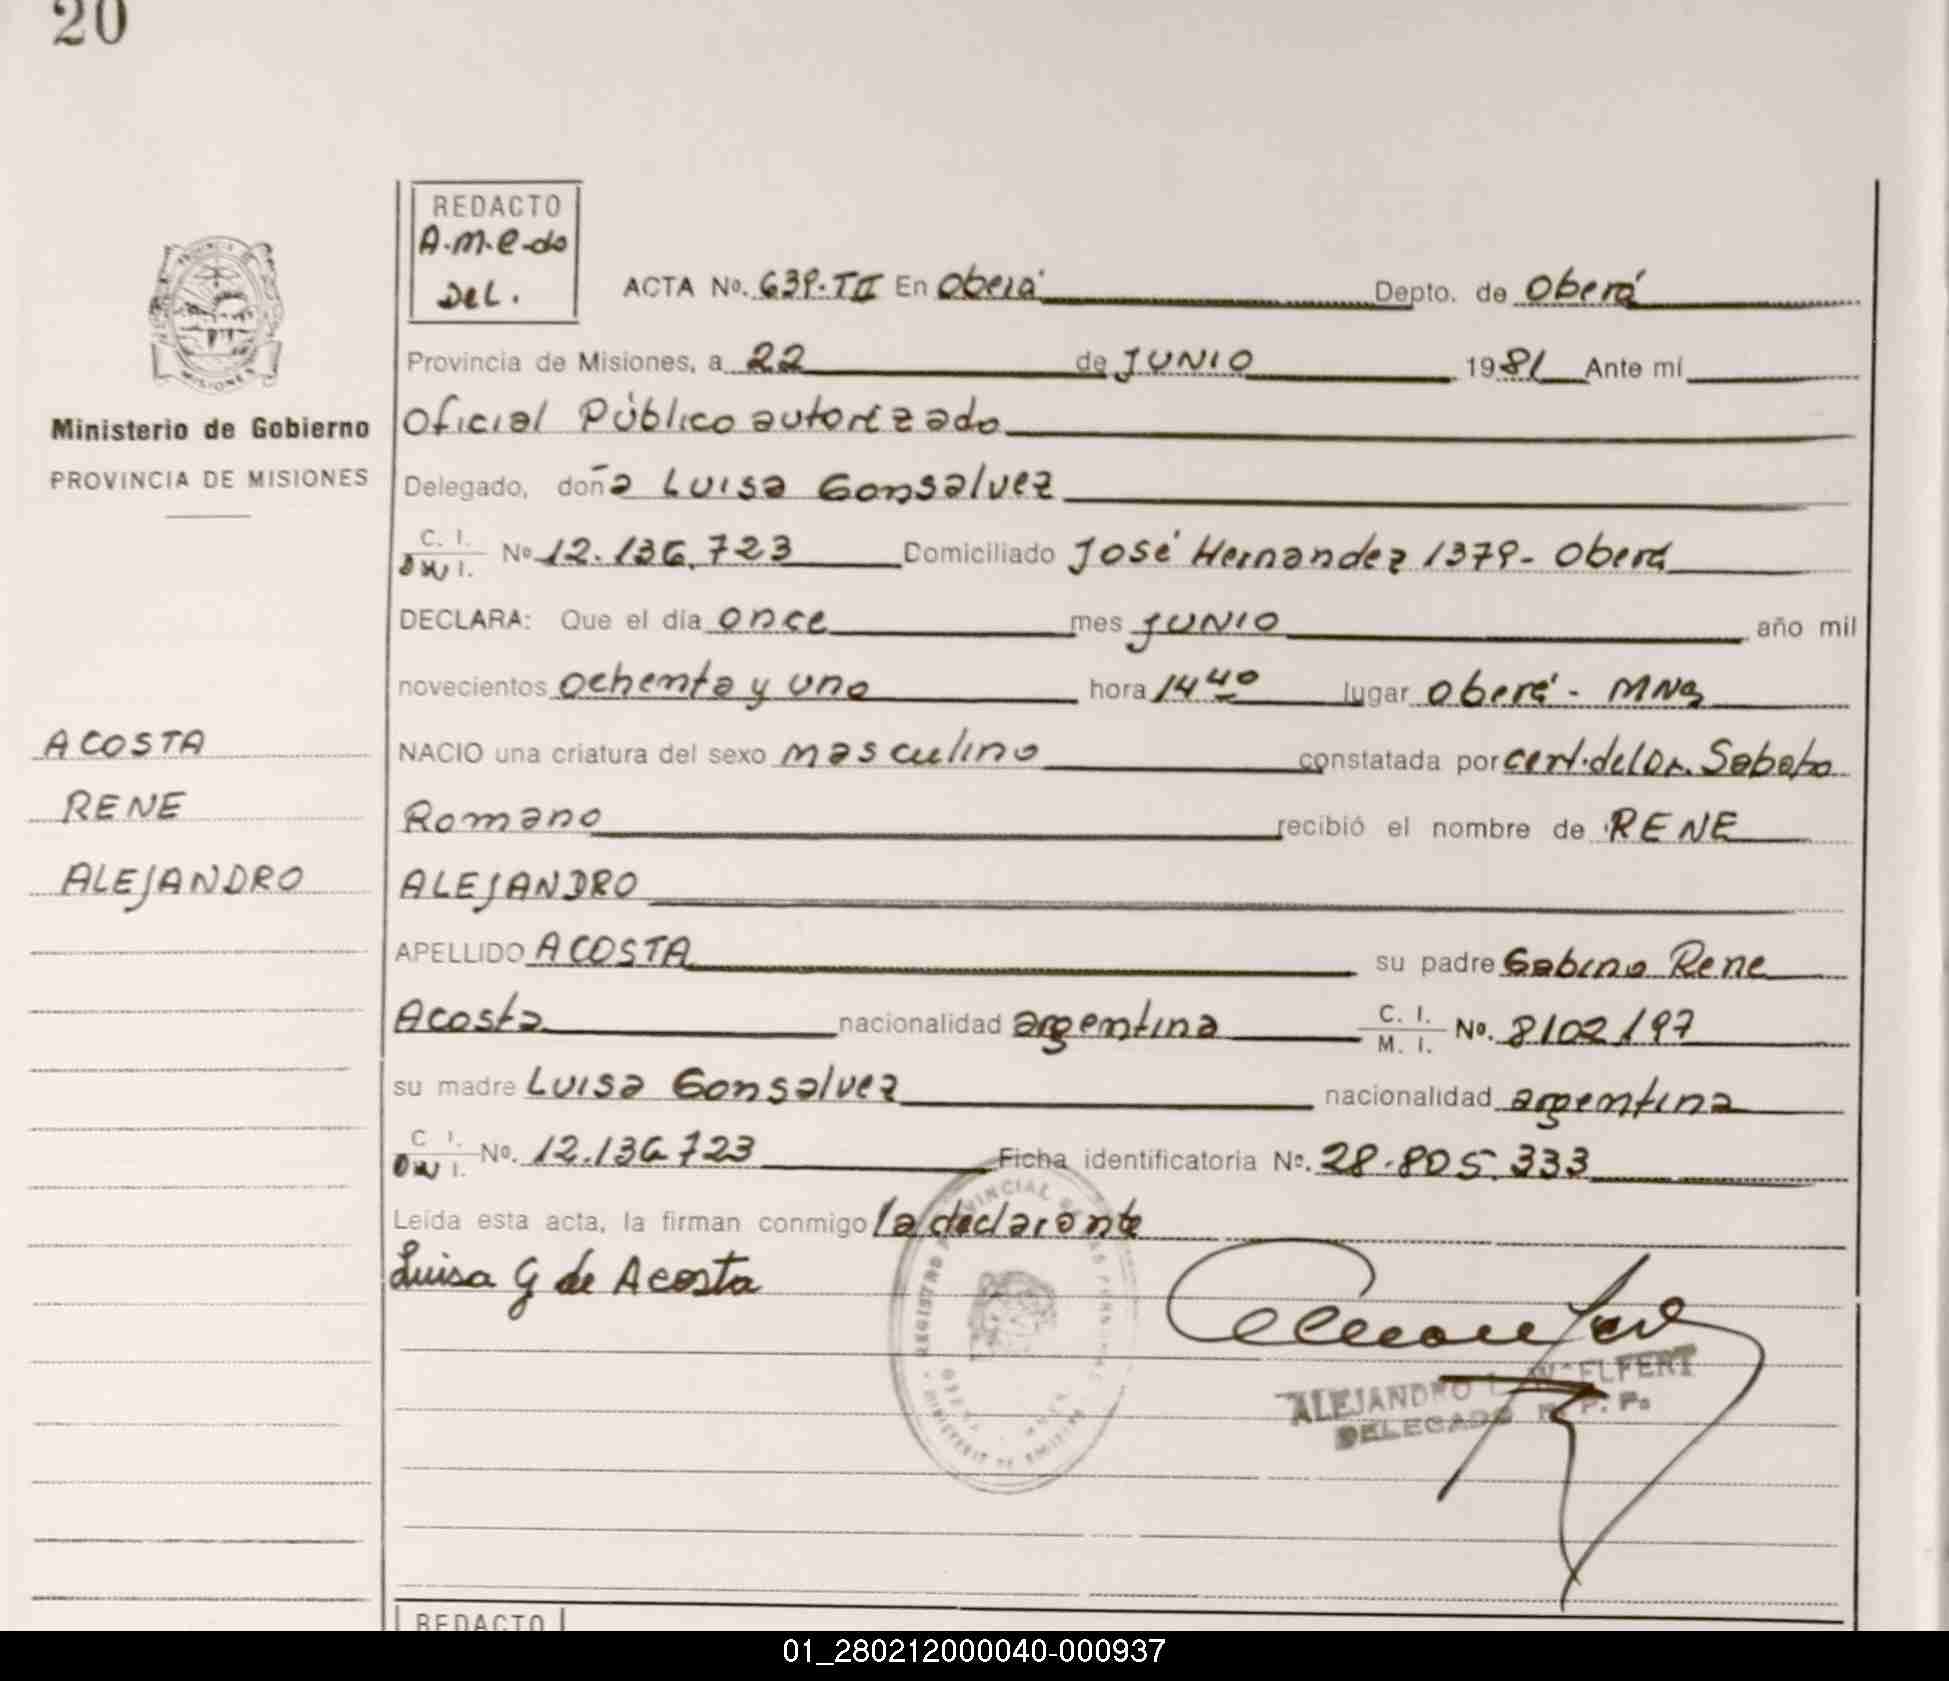 20
REDACTO
A.M.e.do
DEL.
ACTA No. 639.TII En Oberá Depto. de Oberá
Provincia de Misiones, a 22 de JUNIO 1981 Ante mí
Oficial Público autorizado
Ministerio de Gobierno
PROVINCIA DE MISIONES
Delegado, doña Luisa Gonsalvez
C. I. DNI. No 12.136.723 Domiciliado José Hernandez 1379 - Oberá
DECLARA: Que el día once mes JUNIO año mil
novecientos ochenta y uno hora 14 40 lugar Oberá - MNS
ACOSTA
RENE
ALEJANDRO
NACIO una criatura del sexo masculino constatada por cert. del Dr. Sabato
Romano recibió el nombre de RENE
ALEJANDRO
APELLIDO ACOSTA su padre Gabino Rene
Acosta nacionalidad argentina C. I. M. I. No. 8102197
su madre Luisa Gonsalvez nacionalidad argentina
C. I. DNI. No. 12.136.723 Ficha identificatoria No. 28.805.333
Leída esta acta, la firman conmigo la declarante
Luisa G de Acosta
REGISTRO PROVINCIAL DE LAS PERSONAS
ALEJANDRO L.
DELEGADO R. P. P.
REDACTO
01_280212000040-000937